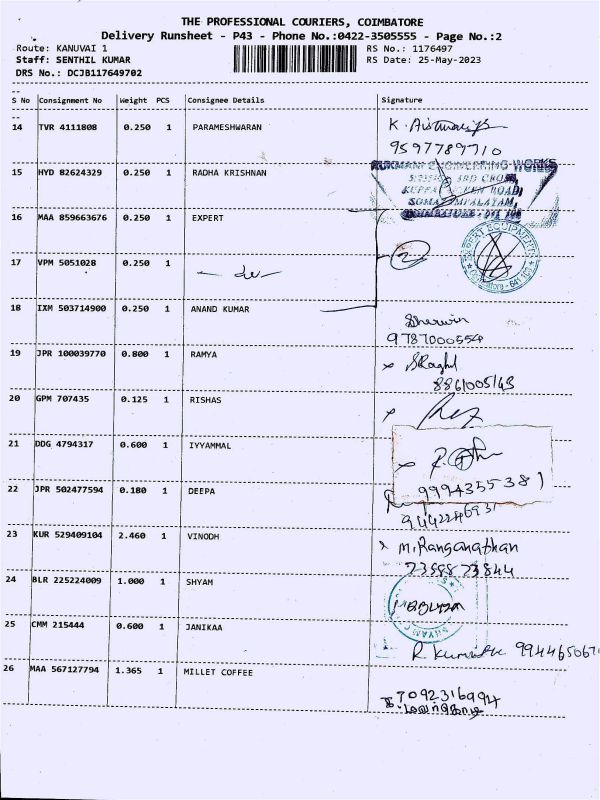 THE PROFESSIONAL COURIERS, COIMBATORE
Delivery Runsheet - P43 - Phone No.:0422-3505555 - Page No.:2
Route: KANUVAI 1 RS No.: 1176497
Staff: SENTHIL KUMAR RS Date: 25-May-2023
DRS No.: DCJB117649702
S No Consignment No Weight PCS Consignee Details Signature
14 TVR 4111808 0.250 1 PARAMESHWARAN K.
9597789710
15 HYD 82624329 0.250 1 RADHA KRISHNAN
RUKMANI ENGINEERING WORKS
3RD CROSS,
ROAD,
16 MAA 859663676 0.250 1 EXPERT
EXPERT EQUIPMENTS
17 VPM 5051028 0.250 1 2
18 IXM 503714900 0.250 1 ANAND KUMAR Sherwin
9787000554
19 JPR 100039770 0.800 1 RAMYA
20 GPM 707435 0.125 1 RISHAS
21 DDG 4794317 0.600 1 IYYAMMAL
9994355381
22 JPR 502477594 0.180 1 DEEPA
23 KUR 529409104 2.460 1 VINODH M. Ranganathan
24 BLR 225224009 1.000 1 SHYAM
25 CMM 215444 0.600 1 JANIKAA
26 MAA 567127794 1.365 1 MILLET COFFEE
7092316994